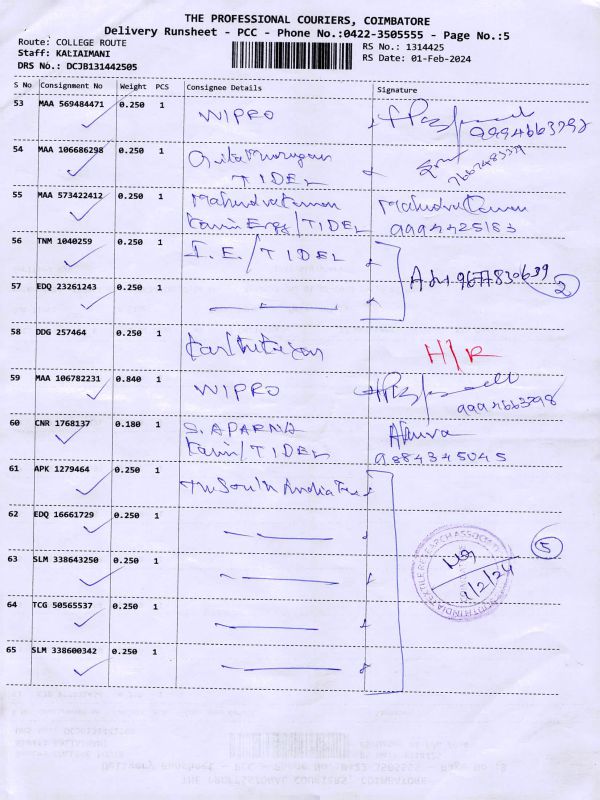 THE PROFESSIONAL COURIERS, COIMBATORE
Delivery Runsheet - PCC - Phone No.:0422-3505555 - Page No.:5
Route: COLLEGE ROUTE
Staff: KALIAIMANI
DRS No.: DCJB131442505
RS No.: 1314425
RS Date: 01-Feb-2024
S No Consignment No Weight PCS Consignee Details Signature
53 MAA 569484471 0.250 1 WIPRO
54 MAA 106686298 0.250 1
TIDEL
55 MAA 573422412 0.250 1
TIDEL 9994425163
56 TNM 1040259 0.250 1 I.E./TIDEL
57 EDQ 23261243 0.250 1
2
58 DDG 257464 0.250 1 H/R
59 MAA 106782231 0.840 1 WIPRO
60 CNR 1768137 0.180 1 S. APARNA
/TIDEL 9884345045
61 APK 1279464 0.250 1 The South India
62 EDQ 16661729 0.250 1
5
63 SLM 338643250 0.250 1
1/2/24
64 TCG 50565537 0.250 1
65 SLM 338600342 0.250 1